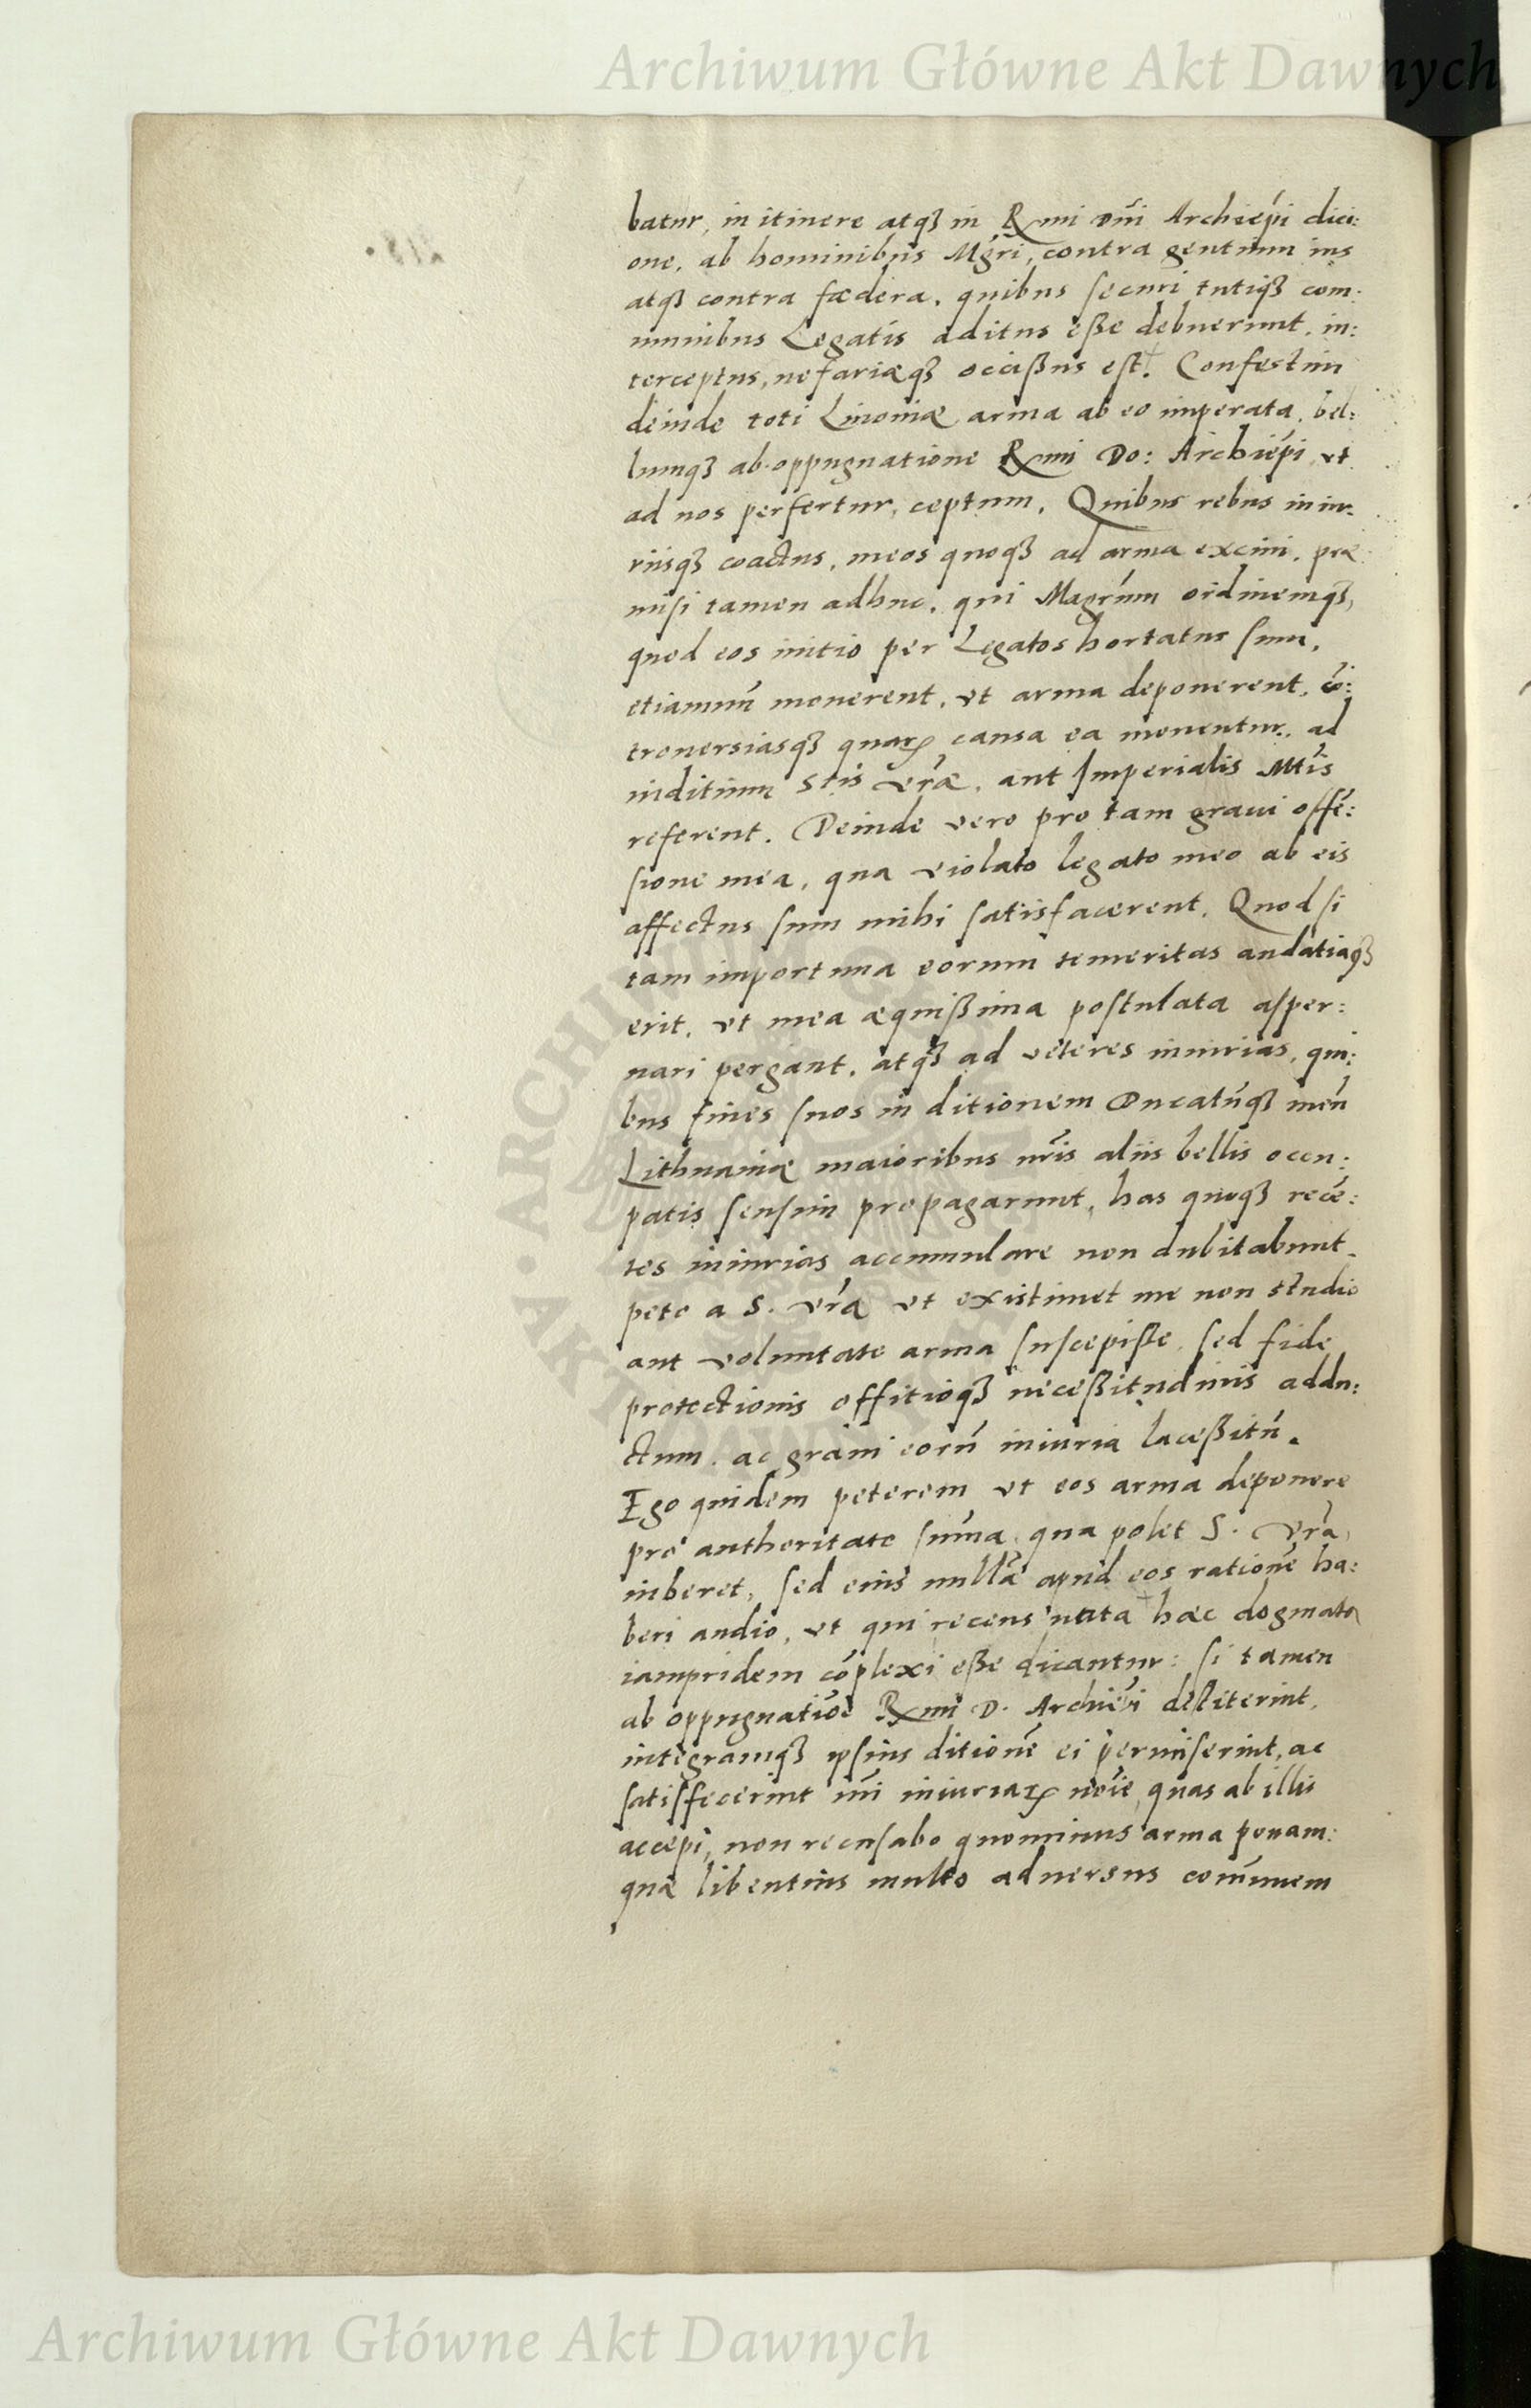 Archiwum Główne Akt Dawnych
batur, in itinere atqꝫ in Rmi Dni Archiepi dici:
one, ab hominibus Mgri, contra gentium ius
atqꝫ contra fædera, quibus securi tutiqꝫ com:
munibus Legatis aditus eße debuerunt, in:
terceptus, nefariæqꝫ occißus est. Confestim
deinde toti Liuoniæ arma ab eo imperata, bel:
lumqꝫ ab oppugnatione Rmi Do: Archiepi, ut
ad nos perfertur, ceptum. Quibus rebus iniu:
riisqꝫ coactus, meos quoqꝫ ad arma exciui, præ
misi tamen adhuc, qui Magrum ordinemqꝫ,
quod eos initio per Legatos hortatus sum,
etiamnū monerent, ut arma deponerent, cō:
trouersiasqꝫ quarꝝ causa ea mouentur, ad
iuditium Stis vræ, aut Imperialis Mtis
referent. Deinde vero pro tam graui offē:
sione mea, qua violato legato meo ab eis
affectus sum mihi satisfacerent. Quod si
tam importuna eorum temeritas audatiaqꝫ
erit, ut mea æquißima postulata asper:
nari pergant, atqꝫ ad veteres iniurias, qui:
bus fines suos in ditionem Ducatūqꝫ meū
Lithuaniæ maioribus nris aliis bellis occu:
patis sensim propagarunt, has quoqꝫ recē:
tes iniurias accumulare non dubitabunt.
peto a S. vra ut existimet me non studio
aut voluntate arma suscepiße, sed fide
protectionis offitioqꝫ neceßitudinis addu:
ctum, ac graui eorū iniuria laceßitū.
Ego quidem peterem ut eos arma deponere
pro authoritate sūma, qua polet S. vra,
iuberet, sed eius nullā apud eos rationē ha:
beri audio, ut qui recens nata hæc dogmata
iampridem cōplexi eße dicantur: si tamen
ab oppugnatiōe Rmi D. Archiepi destiterint,
integramqꝫ ipsius ditionē ei permiserint, ac
satisfecerint mi iniuriarꝝ noīe, quas ab illis
accepi, non recusabo quominus arma ponam:
quæ libentius multo aduersus comūnem
ARCHIWUM
AKT DAWNYCH
Archiwum Główne Akt Dawnych